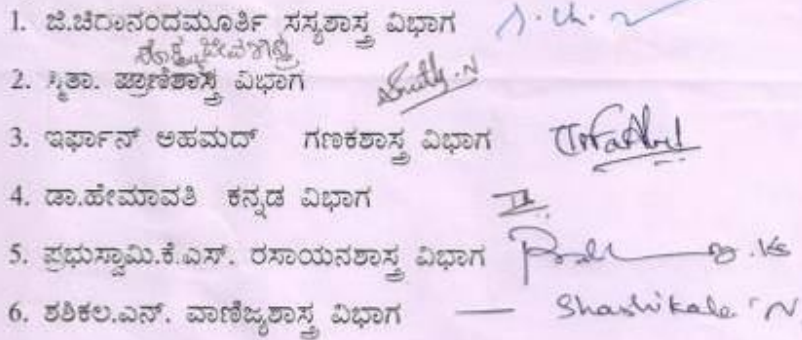 1. ಜಿ.ಚಿದಾನಂದಮೂರ್ತಿ ಸಸ್ಯಶಾಸ್ತ್ರ ವಿಭಾಗ
ಸೂಕ್ಷ್ಮಜೀವಶಾಸ್ತ್ರ
2. ಸ್ಮಿತಾ. ಪ್ರಾಣಿಶಾಸ್ತ್ರ ವಿಭಾಗ Smitha.N
3. ಇರ್ಫಾನ್ ಅಹಮದ್ ಗಣಕಶಾಸ್ತ್ರ ವಿಭಾಗ
4. ಡಾ.ಹೇಮಾವತಿ ಕನ್ನಡ ವಿಭಾಗ
5. ಪ್ರಭುಸ್ವಾಮಿ.ಕೆ.ಎಸ್. ರಸಾಯನಶಾಸ್ತ್ರ ವಿಭಾಗ
6. ಶಶಿಕಲ.ಎನ್. ವಾಣಿಜ್ಯಶಾಸ್ತ್ರ ವಿಭಾಗ — Shashikala.N